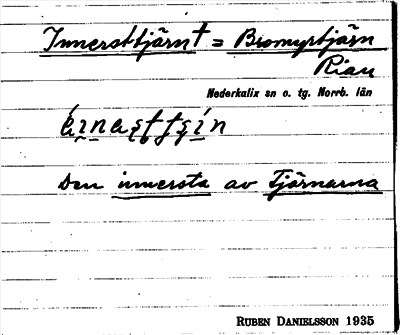 Innersttjärn† = Bromyrtjärn
Rian
Nederkalix sn o. tg. Norrb. län
Den innersta av Tjärnarna
RUBEN DANIELSSON 1935